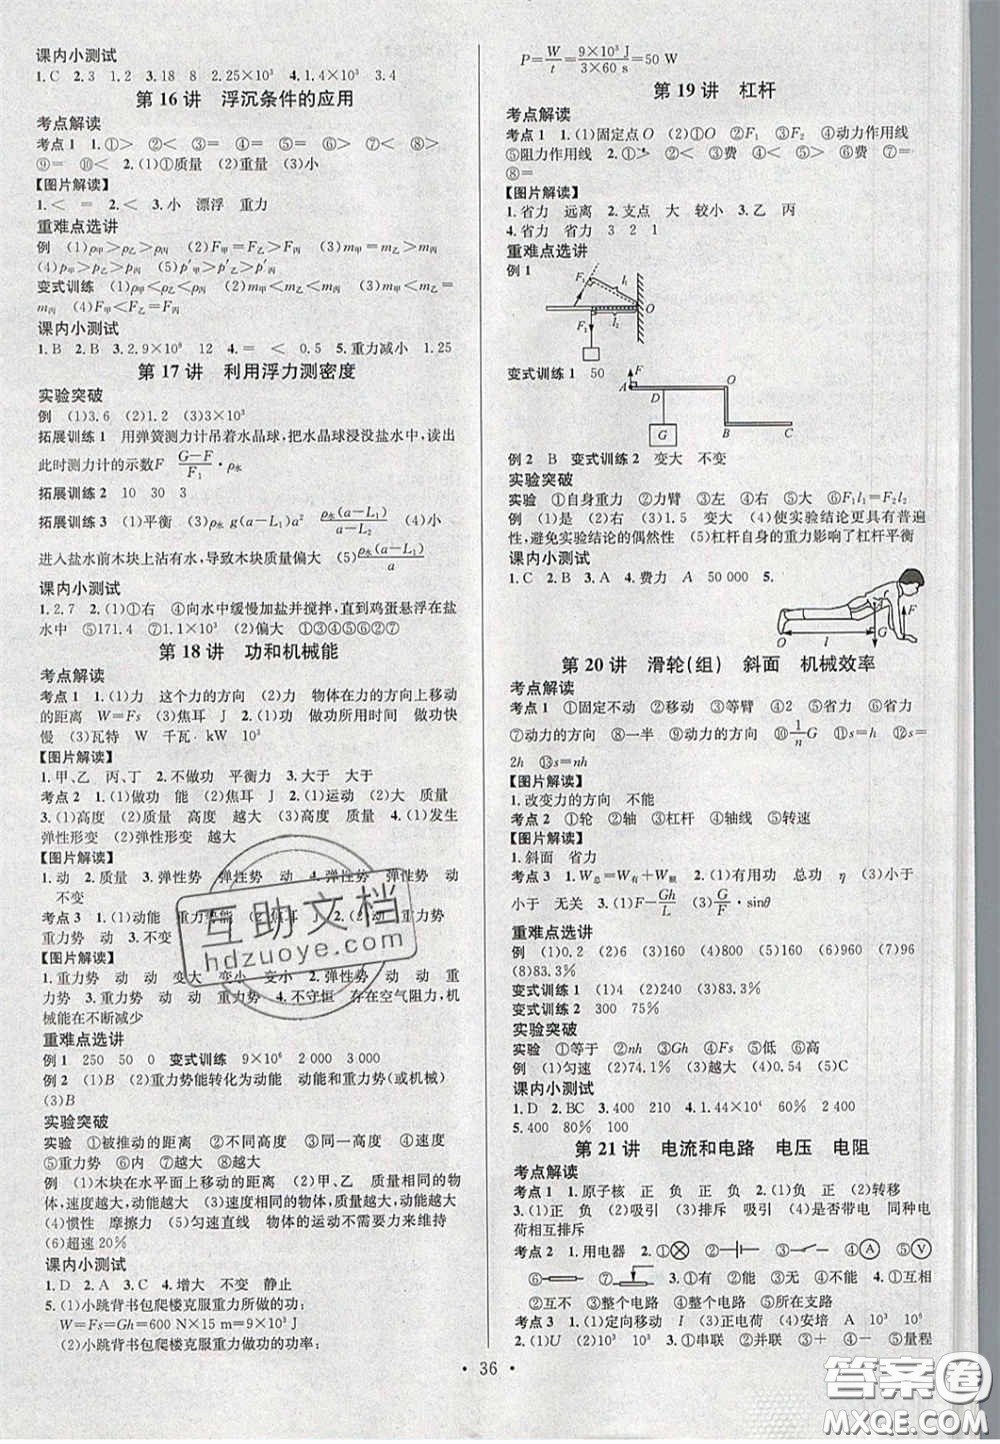 课内小测试
1.C 2.3 1.2 3.18 8 2.25×10³ 4.1.4×10³ 3.4
第 16 讲 浮沉条件的应用
考点解读
考点 1 1.①> ②< ③= ④= ⑤> ⑥= ⑦< ⑧>
⑨= ⑩< 2.(1)①质量 (2)重量 (3)小
【图片解读】
1.< = 2.< 3.小 漂浮 重力
重难点选讲
例 (1)ρ甲>ρ乙>ρ丙 (2)F甲=F乙>F丙 (3)m甲=m乙=m丙
(4)p甲>p乙>p丙 (5)p′甲>p′乙>p′丙
变式训练 (1)ρ甲<ρ乙=ρ丙 (2)G甲<G乙<G丙 (3)m甲<m乙=
m丙 (4)F甲<F乙<F丙
课内小测试
1.B 2.B 3.2.9×10⁸ 12 4.= < 0.5 5.重力减小 1.25
第 17 讲 利用浮力测密度
实验突破
例 (1)3.6 (2)1.2 (3)3×10³
拓展训练 1 用弹簧测力计吊着水晶球,把水晶球浸没盐水中,读
出此时测力计的示数F (G−F)/F₁·ρ水
拓展训练 2 10 30 3
拓展训练 3 (1)平衡 (2)ρ水 g(a−L₁)a² ρ水(a−L₁)/(a−L₂) (4)小
进入盐水前木块上沾有水,导致木块质量偏大 (5)ρ水(a−L₁)/a
课内小测试
1.2.7 2.(1)①右 ④向水中缓慢加盐并搅拌,直到鸡蛋悬浮在盐
水中 ⑤171.4 ⑦1.1×10³ (2)偏大 ①③④⑤⑥②⑦
第 18 讲 功和机械能
考点解读
考点 1 1.(1)力 这个力的方向 (2)力 物体在力的方向上移动
的距离 W=Fs (3)焦耳 J 2.(1)功 做功所用时间 做功快
慢 (3)瓦特 W 千瓦 kW 10³
【图片解读】
1.甲、乙 丙、丁 2.不做功 平衡力 3.大于 大于
考点 2 1.(1)做功 能 (2)焦耳 J 2.(1)运动 (2)大 质量
3.(1)高度 (2)质量 高度 越大 (3)高度 质量 4.(1)发生
弹性形变 (2)弹性形变 越大
【图片解读】
1.动 2.质量 3.弹性势 弹性势 动 4.弹性势 动 动
不变
考点 3 1.(1)动能 重力势能
重力势 动 3.不变
【图片解读】
1.重力势 动 动 变大 变小 变小 2.弹性势 动 动 重
力势 3.动 重力势 重力势 动 4.不守恒 存在空气阻力,机
械能在不断减少
重难点选讲
例 1 250 50 0 变式训练 9×10⁶ 2 000 3 000
例 2 (1)B (2)重力势能转化为动能 动能和重力势(或机械)
(3)B
实验突破
实验 ①被推动的距离 ②不同高度 ③同一高度 ④速度
⑤重力势 ⑥质量 ⑦高度 ⑧越大
例 (1)木块在水平面上移动的距离 (2)甲、乙 质量相同的物
体,速度越大,动能越大 (3)速度相同的物体,质量越大,动能越大
(4)惯性 摩擦力 (5)匀速直线 物体的运动不需要力来维持
(6)超速 20%
课内小测试
1.D 2.A 3.C 4.增大 不变 静止
5.(1)小跳背书包爬楼克服重力所做的功:
W=Fs=Gh=600 N×15 m=9×10³ J
(2)小跳背书包爬楼克服重力做功的功率:
P=W/t=9×10³ J/(3×60 s)=50 W
第 19 讲 杠杆
考点解读
考点 1 1.(1)固定点 O (2)①支点 ②F₁ ③F₂ ④动力作用线
⑤阻力作用线 2.①> ②< ③费 ④< ⑤> ⑥费 ⑦=
⑧=
【图片解读】
1.省力 远离 2.支点 大 较小 3.乙 丙
4.省力 省力 3 2 1
重难点选讲
例 1
F₁ l₁ O F₂ l₂
变式训练 1 50
F A D O G B C
例 2 B 变式训练 2 变大 不变
实验突破
实验 ①自身重力 ②力臂 ③左 ④右 ⑤大 ⑥F₁l₁=F₂l₂
例 (1)是 (2)右 (3)1.5 变大 (4)使实验结论更具有普遍
性,避免实验结论的偶然性 (5)杠杆自身的重力影响了杠杆平衡
课内小测试
1.C 2.B 3.A 4.费力 A 50 000 5.
F O l G
第 20 讲 滑轮(组) 斜面 机械效率
考点解读
考点 1 ①固定不动 ②移动 ③等臂 ④2 ⑤省力 ⑥省力
⑦动力的方向 ⑧一半 ⑨动力的方向 ⑩1/n G ⑪s=h ⑫s=
2h ⑬s=nh
【图片解读】
1.改变力的方向 不能
考点 2 ①轮 ②轴 ③杠杆 ④轴线 ⑤转速
【图片解读】
1.斜面 省力
考点 3 1.W总=W有+W额 2.(1)有用功 总功 η (3)小于
小于 无关 3.(1)F−Gh/L (2)G/F·sinθ
重难点选讲
例 (1)0.2 (2)6 (3)160 (4)800 (5)160 (6)960 (7)96
(8)83.3%
变式训练 1 (1)4 (2)240 (3)83.3%
变式训练 2 300 75%
实验突破
实验 ①等于 ②nh ③Gh ④Fs ⑤低 ⑥高
例 (1)匀速 (2)74.1% (3)变大 (4)变大 (5)C
课内小测试
1.D 2.BC 3.400 210 4.1.44×10⁴ 60% 2 400
5.400 80% 100
第 21 讲 电流和电路 电压 电阻
考点解读
考点 1 1.原子核 正 负 正 负 2.(1)电子 (2)转移
3.(1)正 负 (2)吸引 (3)排斥 吸引 (4)是否带电 同种电
荷相互排斥
考点 2 1.用电器 2.①⊗ ② ③ ④Ⓐ ⑤Ⓥ
⑥ ⑦ 3.①有 ②能 ③无 ④不能 4.①互相
②互不 ③整个电路 ④支路 ⑤所在支路
考点 3 1.(1)定向移动 I (3)正电荷 (4)安培 A 10³ 10³
2.(1)U (2)伏特 V 10³ 10³ 3.①串联 ②并联 ③+ ④− ⑤量程
• 36 •
互助文档
hdzuoye.com
答案圈
MXQE.COM